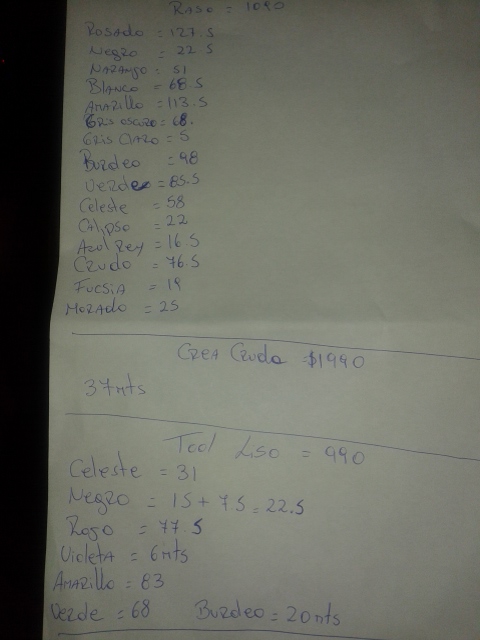 Raso = 1090
Rosado = 127.5
Negro = 22.5
Naranjo = 51
Blanco = 68.5
Amarillo = 113.5
Gris oscuro = 68.
Gris Claro = 5
Burdeo = 98
Verde = 85.5
Celeste = 58
Calipso = 22
Azul Rey = 16.5
Crudo = 76.5
Fucsia = 19
Morado = 25
Crea Crudo $1990
37 mts
Tool Liso = 990
Celeste = 31
Negro = 15 + 7.5 = 22.5
Rojo = 77.5
Violeta = 6mts
Amarillo = 83
Verde = 68 Burdeo = 20mts